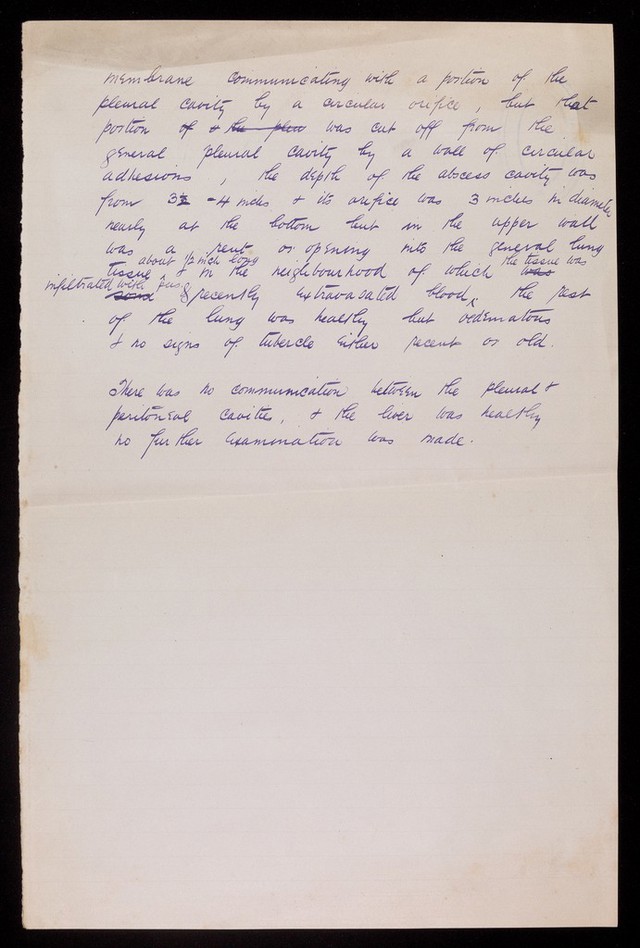 membrane communicating with a portion of the
pleural cavity by a circular orifice, but that
portion of & the pleu was cut off from the
general pleural cavity by a wall of circular
adhesions, the depth of the abscess cavity was
from 3 - 4 inches & its orifice was 3 inches in diameter
nearly at the bottom but in the upper wall
was a rent or opening into the general lung
about 1/2 inch long the tissue was
tissue & in the neighbourhood of which was
infiltrated with pus &
recently extravasated blood, the rest
of the lung was healthy but oedematous
& no signs of tubercle either recent or old.
There was no communication between the pleural &
peritoneal cavities, & the liver was healthy
no further examination was made.